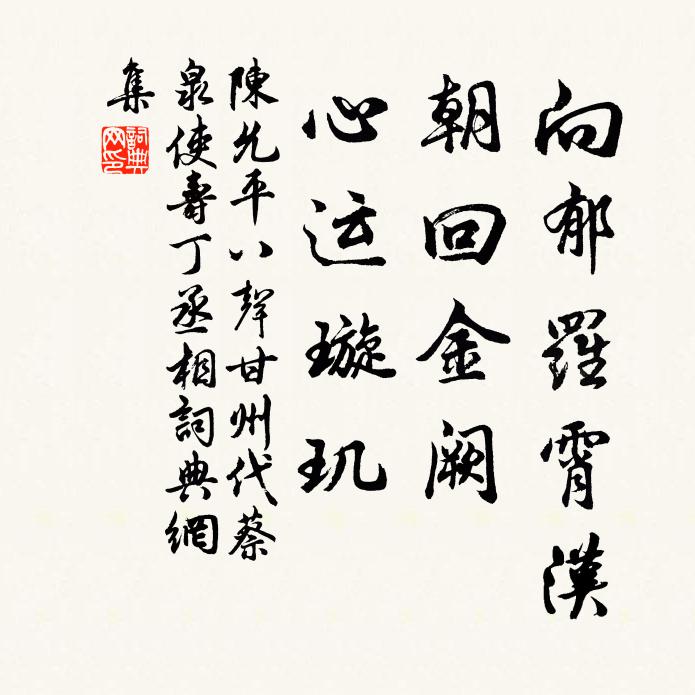 向郁羅霄漢
朝回金阙
心运璇玑
陳允平八聲甘州代蔡
泉使壽丁丞相詞典網
集
詞典
网印